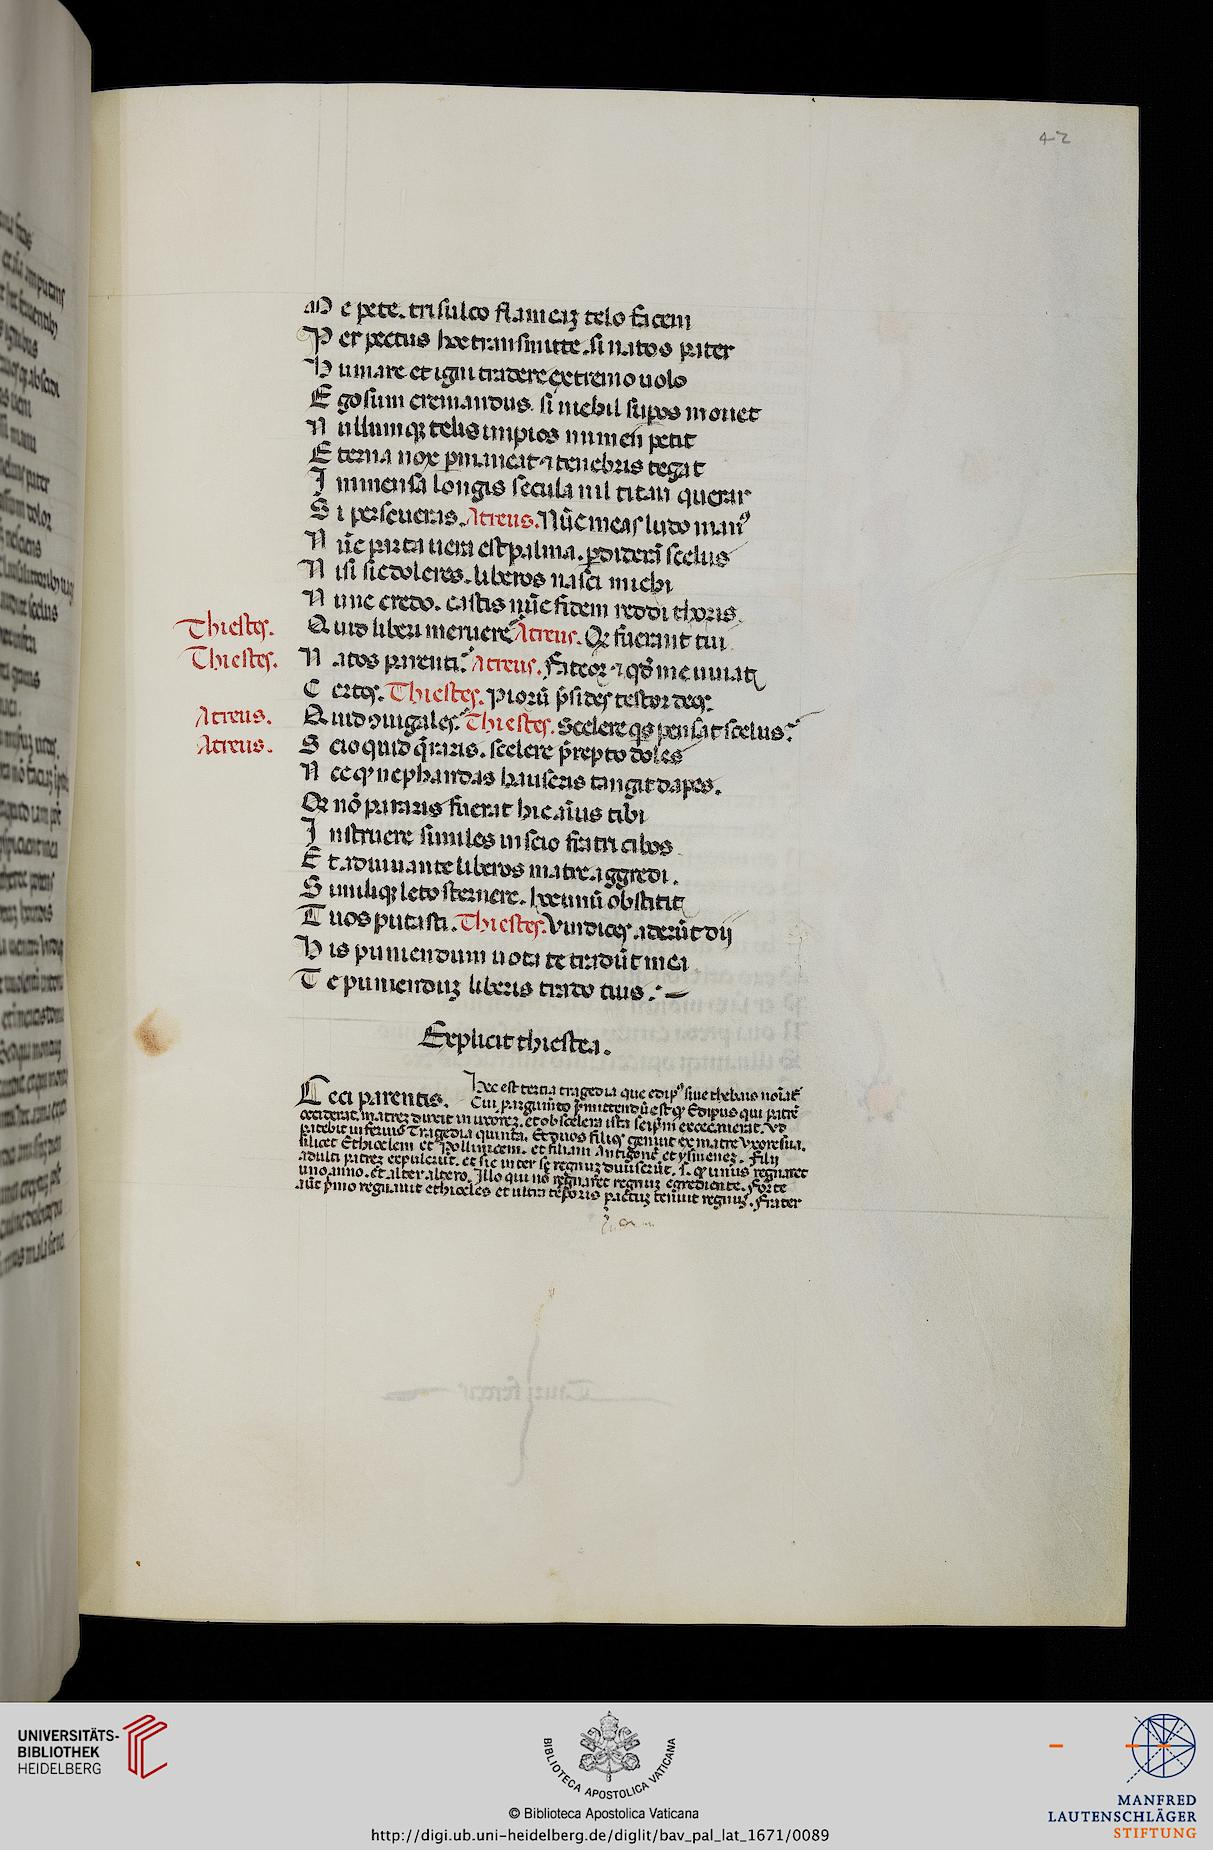 42
M e pete. trisulco flameaꝫ telo facem
P er pectus hoc transmitte. si natos pater
H umare et igni tradere extremo uolo
E go sum cremandus. si nichil suꝑos mouet
N ullumqꝫ telis impios numen petit
E terna nox ꝑmaneat ⁊ tenebris tegat
I mmensa longis secula nil titan querar
S i perseueras. Atreus. Nūc meas ludo manꝰ
N ūc parta uera est palma. ꝑdiderā scelus
N isi sic doleres. liberos nasci michi
N unc credo. castis nūc fidem reddi thoris.
Thiestes. Q uid liberi meruere Atreus. Qꝫ fuerant tui
Thiestes. N atos parenti. Atreus. fateor ⁊ qđ me iuuat
C ertos. Thiestes. piorū p̄sides testor deos.
Atreus. Q uid ꝯiugales. Thiestes. Scelere qͥs pensat scelus.
Atreus. S cio quid q̄raris. scelere p̄repto doles
N ec qꝙ nephandas hauseris tangit dapes.
Qꝫ nō pararis fuerat hic aīus tibi
I nstruere similes inscio fratri cibos
E t adiuuante liberos matre aggredi.
S imiliqꝫ leto sternere. hoc unū obstitit
T uos putasti. Thiestes. Vindices aderūt dij
H is puniendum uota te tradūt mea
T e puniendūꝫ liberis trado tuis.
Explicit thiestea.
Ceci parentis. Hec est tertia tragedia que edipꝰ siue thebais noīat᷑
Cui ꝑ argumēto p̄mittendū est qꝙ Edipus qui patrē
occiderat. matreꝫ duxit in uxoreꝫ. et ob scelera ista seip̄m excecauerat. vt
patebit inferius Tragedia quinta. Et duos filios genuit ex matre uxore sua.
silicet Ethioclem et Pollinicem. et filiam Antigonē et ysmeneꝫ. Filij
adulti patreꝫ expulerūt. et sic inter se regnuꝫ diuiserūt. s. qꝙ unus regnaret
uno anno. et alter altero. Illo qui nō regnaret regnuꝫ egrediente. forte
aūt p̄mo regnauit ethiocles et ultra tēporis pactuꝫ tenuit regnuꝫ. Frater
UNIVERSITÄTS-
BIBLIOTHEK
HEIDELBERG
BIBLIOTECA APOSTOLICA VATICANA
© Biblioteca Apostolica Vaticana
http://digi.ub.uni-heidelberg.de/diglit/bav_pal_lat_1671/0089
MANFRED
LAUTENSCHLÄGER
STIFTUNG